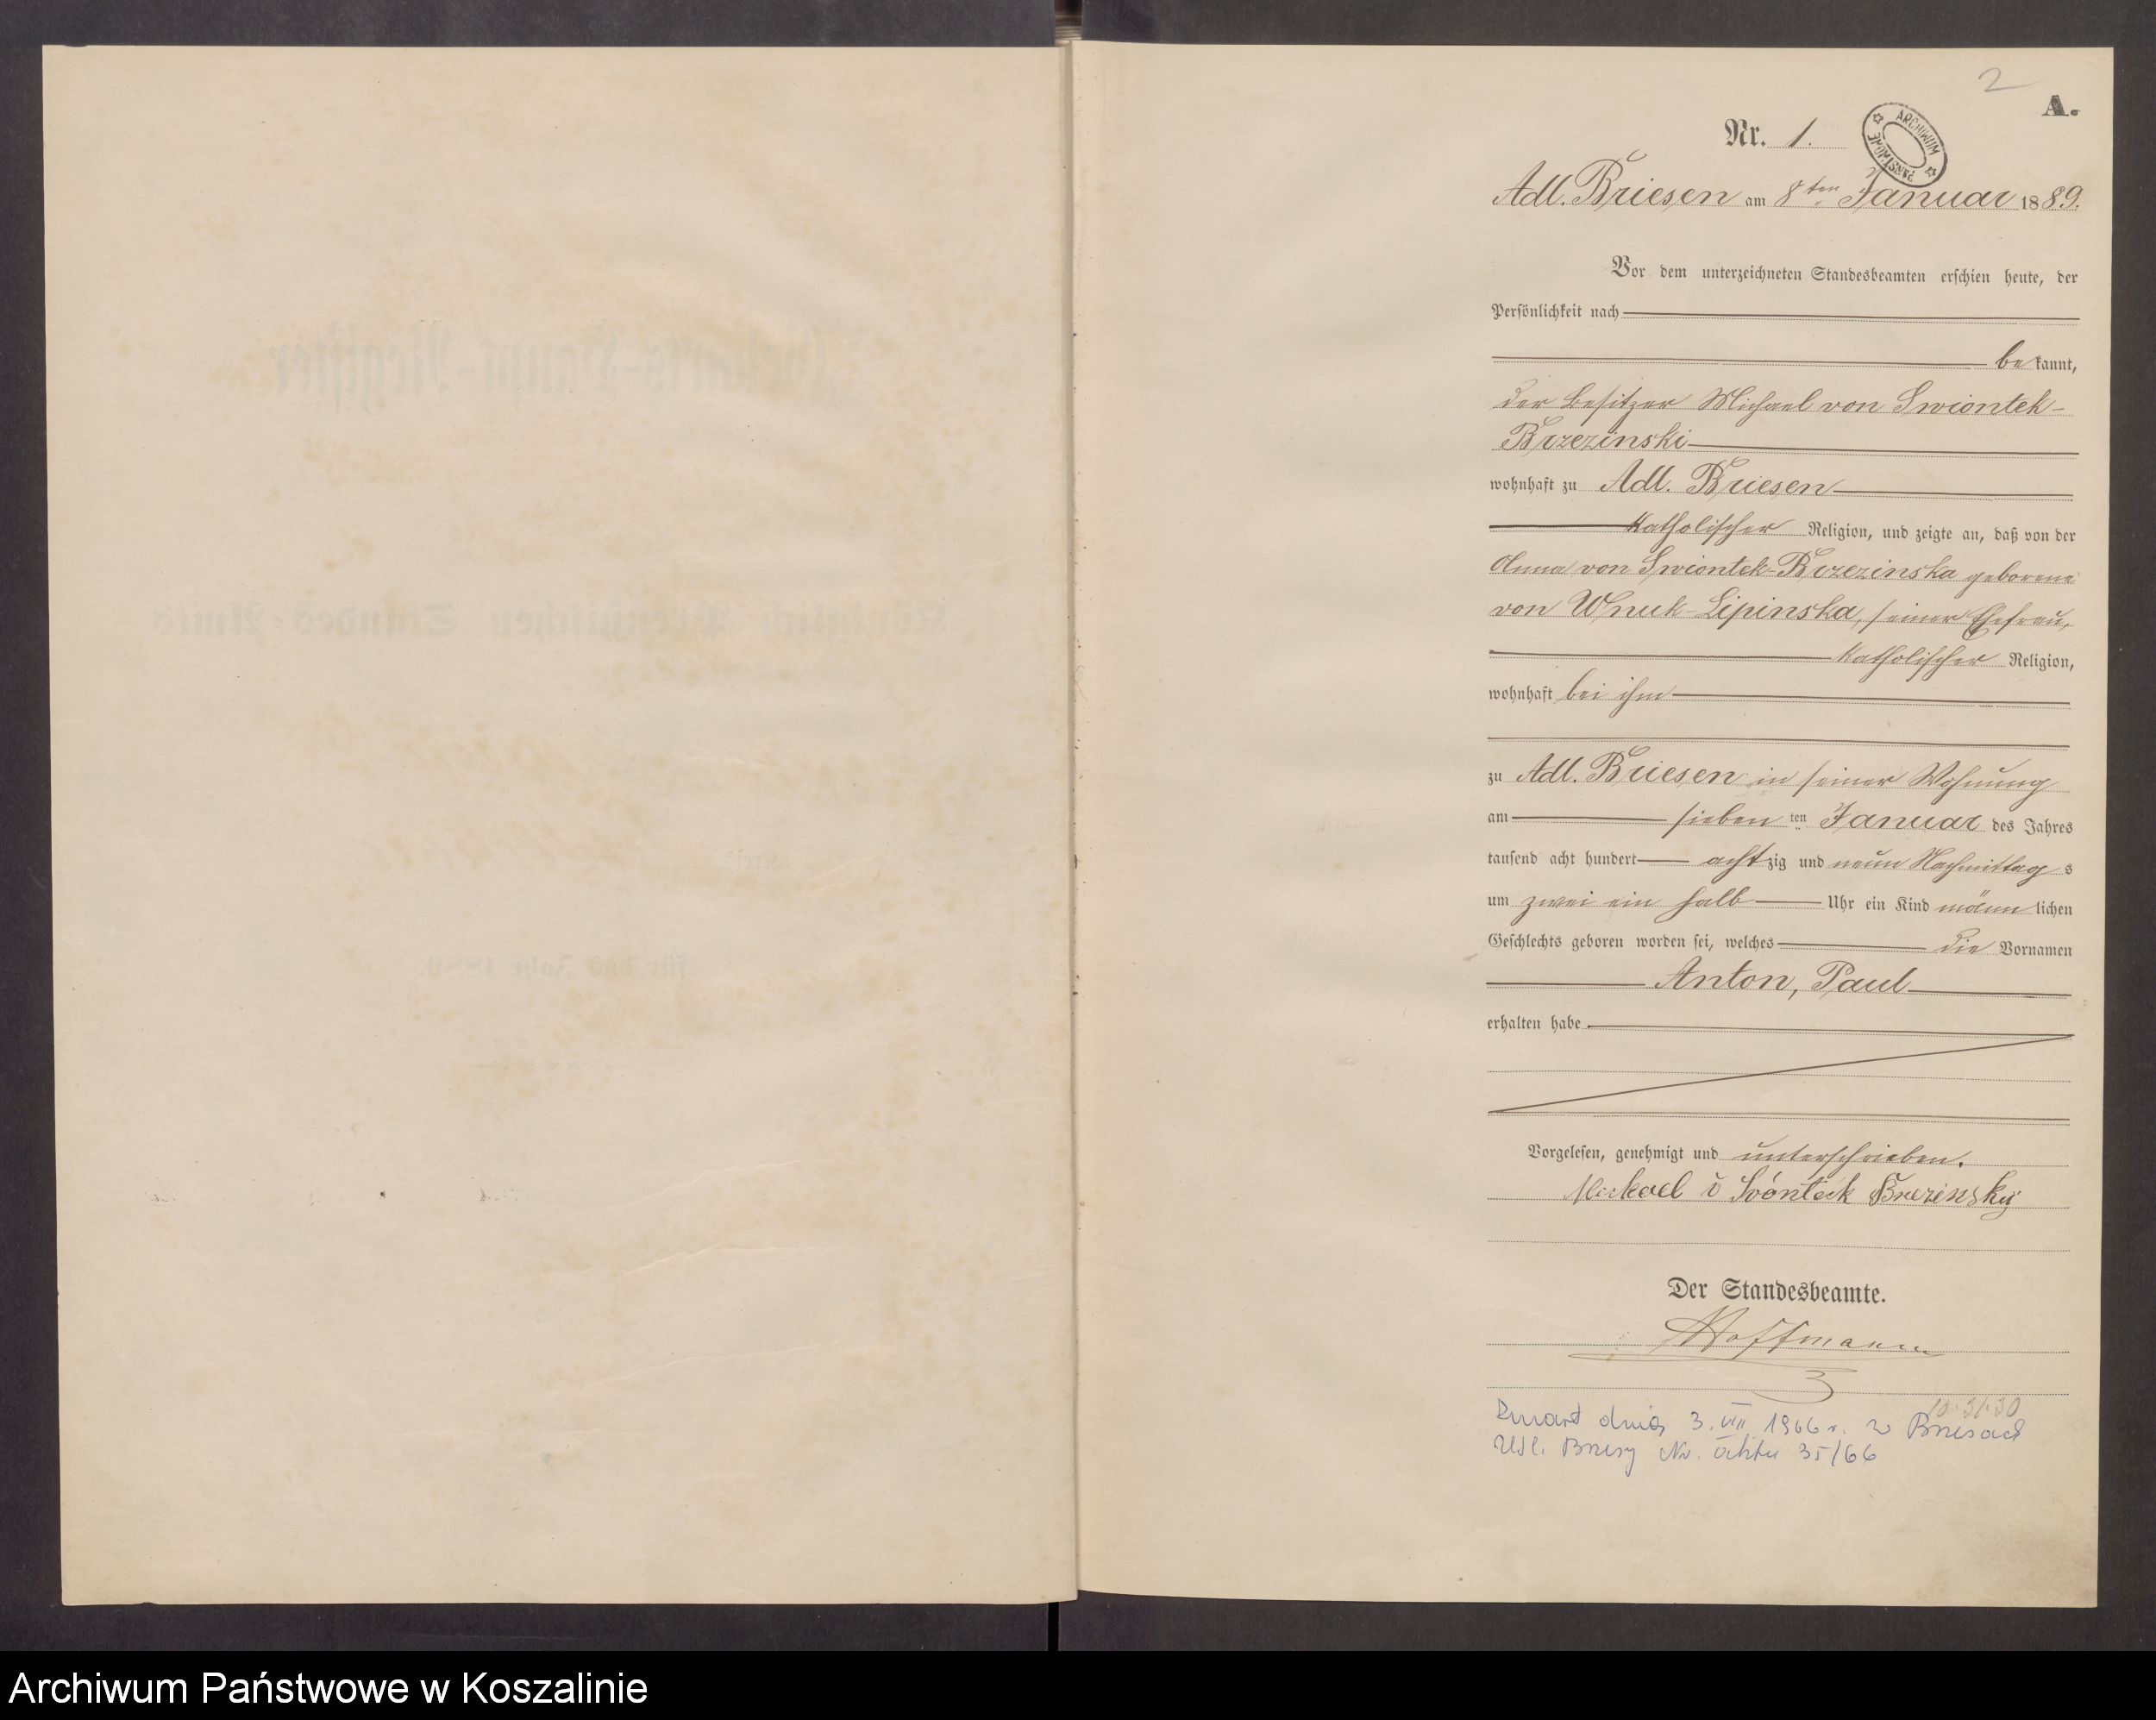 2
A.
Nr. 1.
ARCHIWUM PAŃSTWOWE
Adl. Briesen am 8ten Januar 1889.
Vor dem unterzeichneten Standesbeamten erschien heute, der
Persönlichkeit nach
bekannt,
der Besitzer Michael von Swiontek-
Brzezinski
wohnhaft zu Adl. Briesen
katholischer Religion, und zeigte an, daß von der
Anna von Swiontek-Brzezinska geborene
von Wnuk-Lipinska, seiner Ehefrau,
katholischer Religion,
wohnhaft bei ihm
zu Adl. Briesen in seiner Wohnung
am sieben ten Januar des Jahres
tausend acht hundert achtzig und neun Nachmittags
um zwei ein halb Uhr ein Kind männlichen
Geschlechts geboren worden sei, welches die Vornamen
Anton, Paul
erhalten habe
Vorgelesen, genehmigt und unterschrieben.
Michael v Swóntek Brezinsky
Der Standesbeamte.
Hoffmann
Zmarł dnia 3. VIII 1966 r. w Brzesach
USC. Brzesy Nr. aktu 35/66
Archiwum Państwowe w Koszalinie